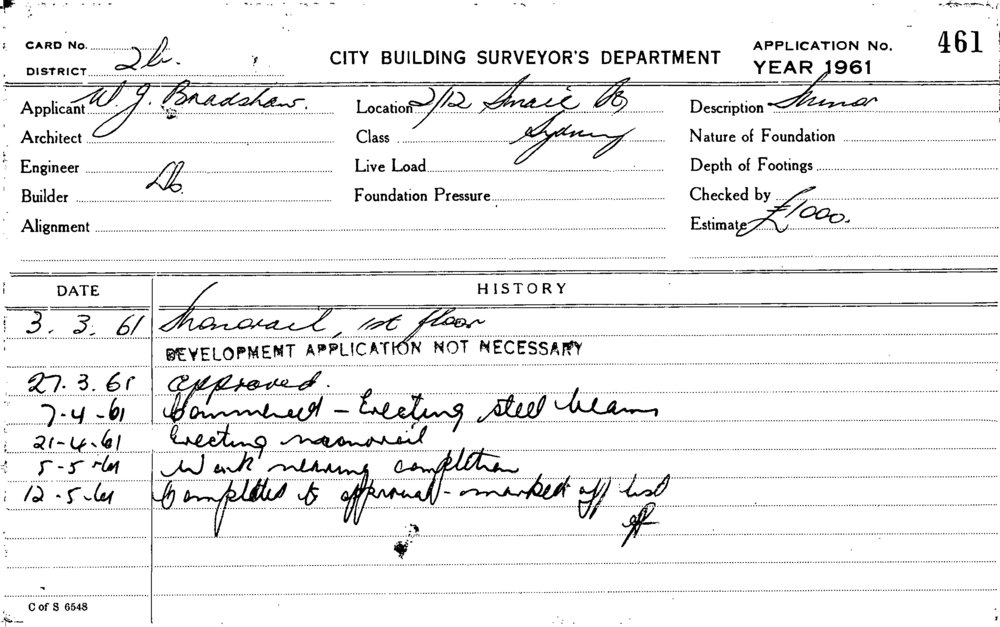 CARD No.
DISTRICT 2b.
CITY BUILDING SURVEYOR'S DEPARTMENT
APPLICATION No. 461
YEAR 1961
Applicant W. J. Bradshaw.
Location 2/12
Description Minor
Architect
Class Sydney
Nature of Foundation
Engineer
Live Load
Depth of Footings
Builder Do.
Foundation Pressure
Checked by
Alignment
Estimate £1000.
DATE HISTORY
3. 3. 61 Monorail, 1st floor
DEVELOPMENT APPLICATION NOT NECESSARY
27. 3. 61 approved.
7-4-61 Commenced - Erecting steel beams
21-4-61 Erecting monorail
5-5-61 Work nearing completion
12-5-61 Completed to approval - marked off list
C of S 6548